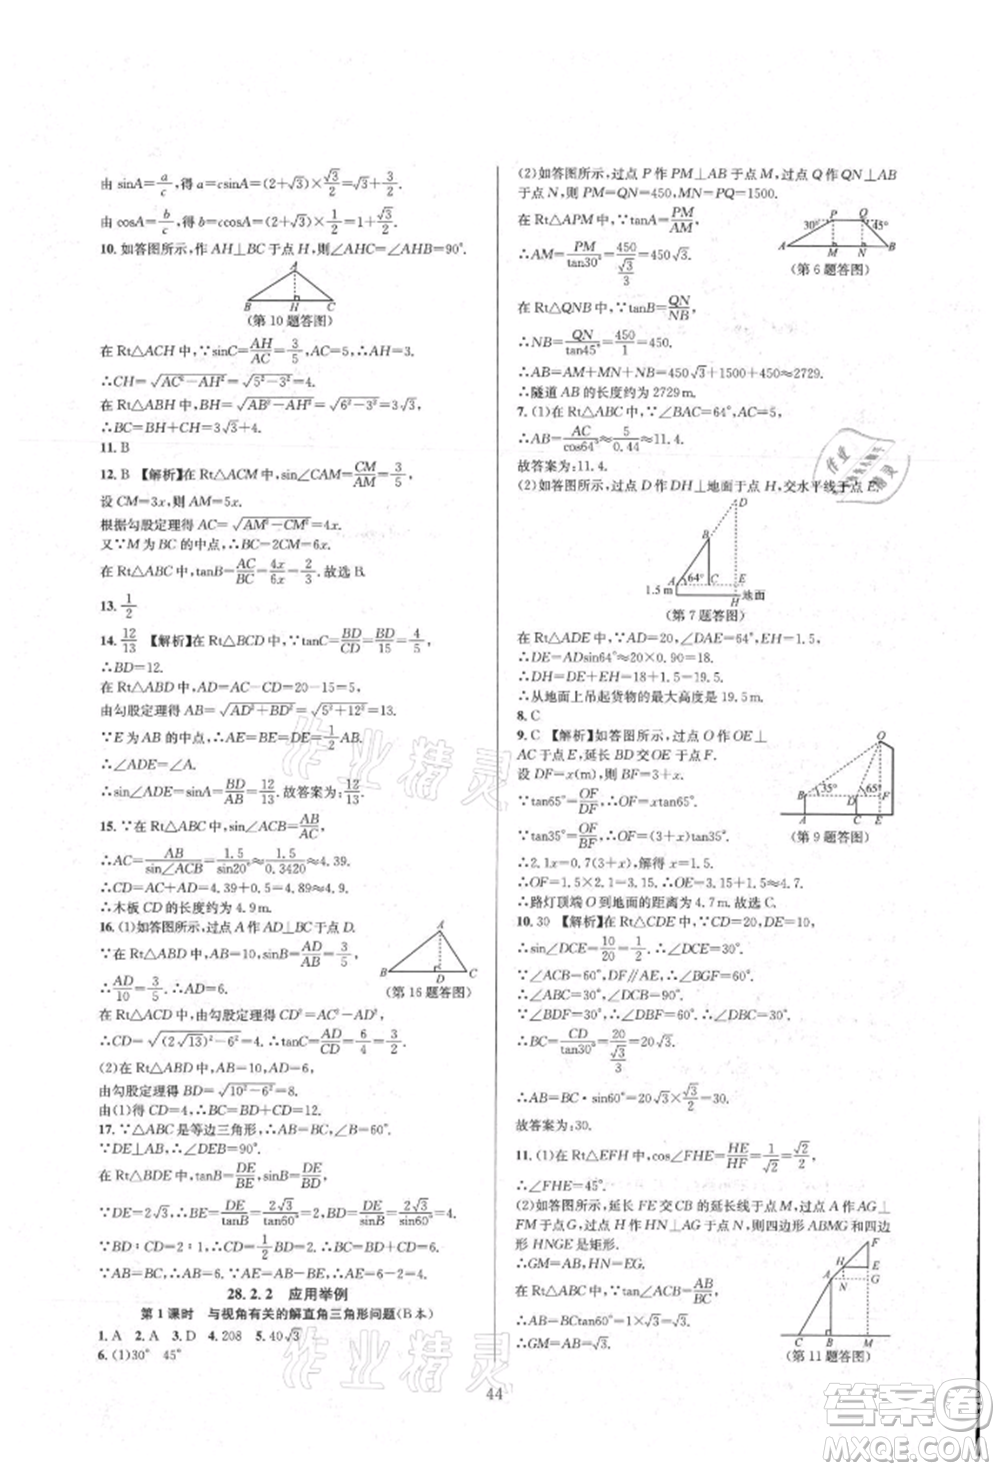 由 sinA=a/c,得 a=csinA=(2+√3)×√3/2=√3+3/2.
由 cosA=b/c,得 b=ccosA=(2+√3)×1/2=1+√3/2.
10. 如答图所示,作 AH⊥BC 于点 H,则∠AHC=∠AHB=90°.
A
B H C
(第 10 题答图)
在 Rt△ACH 中,∵sinC=AH/AC=3/5,AC=5,∴AH=3.
∴CH=√(AC²-AH²)=√(5²-3²)=4.
在 Rt△ABH 中,BH=√(AB²-AH²)=√(6²-3²)=3√3.
∴BC=BH+CH=3√3+4.
11. B
12. B 【解析】在 Rt△ACM 中,sin∠CAM=CM/AM=3/5,
设 CM=3x,则 AM=5x.
根据勾股定理得 AC=√(AM²-CM²)=4x.
又∵M 为 BC 的中点,∴BC=2CM=6x.
在 Rt△ABC 中,tanB=AC/BC=4x/6x=2/3.故选 B.
13. 1/2
14. 12/13 【解析】在 Rt△BCD 中,∵tanC=BD/CD=BD/15=4/5,
∴BD=12.
由勾股定理得 AB=√(AD²+BD²)=√(5²+12²)=13.
∵E 为 AB 的中点,∴AE=BE=DE=1/2AB.
∴∠ADE=∠A.
∴sin∠ADE=BD/AB=12/13.故答案为:12/13.
15. ∵在 Rt△ABC 中,sin∠ACB=AB/AC,
∴AC=AB/sin∠ACB=1.5/sin20°≈1.5/0.3420≈4.39.
∴CD=AC+AD=4.39+0.5≈4.9(m).
∴木板 CD 的长度约为 4.9 m.
16. (1)如答图所示,过点 A 作 AD⊥BC 于点 D.
∵在 Rt△ABD 中,AB=10,sinB=AD/AB,
∴AD/10=3/5,∴AD=6.
A
B D C
(第 16 题答图)
在 Rt△ACD 中,由勾股定理得 CD²=AC²-AD²,
∴CD=√((2√13)²-6²)=4.∴tanC=AD/CD=6/4=3/2.
(2)在 Rt△ABD 中,AB=10,AD=6,
由勾股定理得 BD=√(10²-6²)=8.
由(1)得 CD=4,∴BC=BD+CD=12.
17. ∵△ABC 是等边三角形,∴∠B=60°.
∵DE⊥AB,∴∠DEB=90°.
在 Rt△BDE 中,tanB=DE/BE,∴BD=DE/tanB.
∵DE=2√3,∴BE=DE/tanB=2√3/tan60°=2√3/√3=2.
∵BD∶CD=2∶1,∴CD=2.∴BC=BD+CD=6.
∵AB=BC,∴AB=6.∴AE=AB-BE=6-2=4.
28.2.2 应用举例
第 1 课时 与视角有关的解直角三角形问题(B 本)
1. A 2. A 3. D 4. 208 5. 40√3
6. (1)30° 45°
(2)如答图所示,过点 P 作 PM⊥AB 于点 M,过点 Q 作 QN⊥AB
于点 N,则 PM=QN=450,MN=PQ=1500.
在 Rt△APM 中,∵tanA=PM/AM,
∴AM=PM/tan30°=450/(√3/3)=450√3.
P Q
30° 45°
A M N B
(第 6 题答图)
在 Rt△QNB 中,∵tanB=QN/NB,
∴NB=QN/tan45°=450/1=450.
∴AB=AM+MN+NB=450√3+1500+450≈2729.
∴隧道 AB 的长度约为 2729 m.
7. (1)在 Rt△ABC 中,∵∠BAC=64°,AC=5,
∴AB=AC/cos64°≈5/0.44≈11.4.
故答案为:11.4.
(2)如答图所示,过点 D 作 DH⊥地面于点 H,交水平线于点 E.
D
B
A 64° C E
1.5 m
H 地面
(第 7 题答图)
在 Rt△ADE 中,∵AD=20,∠DAE=64°,EH=1.5,
∴DE=ADsin64°≈20×0.90=18.
∴DH=DE+EH=18+1.5=19.5.
∴从地面上吊起货物的最大高度是 19.5 m.
8. C
9. C 【解析】如答图所示,过点 O 作 OE⊥
AC 于点 E,延长 BD 交 OE 于点 F.
设 DF=x(m),则 BF=3+x.
∵tan65°=OF/DF,∴OF=xtan65°.
∵tan35°=OF/BF,∴OF=(3+x)tan35°.
∴2.1x=0.7(3+x),解得 x=1.5.
∴OF=1.5×2.1=3.15.∴OE=3.15+1.5≈4.7.
O
B 35° D 65° F
A C E
(第 9 题答图)
∴路灯顶端 O 到地面的距离约为 4.7 m.故选 C.
10. 30 【解析】在 Rt△CDE 中,∵CD=20,DE=10,
∴sin∠DCE=10/20=1/2,∴∠DCE=30°.
∵∠ACB=60°,DF∥AE,∴∠BGF=60°.
∵∠BDF=30°,∴∠DBC=90°.
∴BC=CD/tan30°=20/(√3/3)=20√3.
∴AB=BC·sin60°=20√3×√3/2=30.
故答案为:30.
11. (1)在 Rt△EFH 中,cos∠FHE=HE/HF=1/√2=√2/2,
∴∠FHE=45°.
(2)如答图所示,延长 FE 交 CB 的延长线于点 M,过点 A 作 AG⊥
FM于点 G,过点 H 作 HN⊥AG 于点 N,则四边形 ABMG 和四边
形 HNGE 是矩形.
∴GM=AB,HN=EG.
F
H E
A N G
C B M
(第 11 题答图)
在 Rt△ABC 中,∵tan∠ACB=AB/BC,
∴AB=BC·tan60°=1×√3=√3.
∴GM=AB=√3.
44
作业精灵
作业精灵
作业精灵
答案圈
MXQE.COM